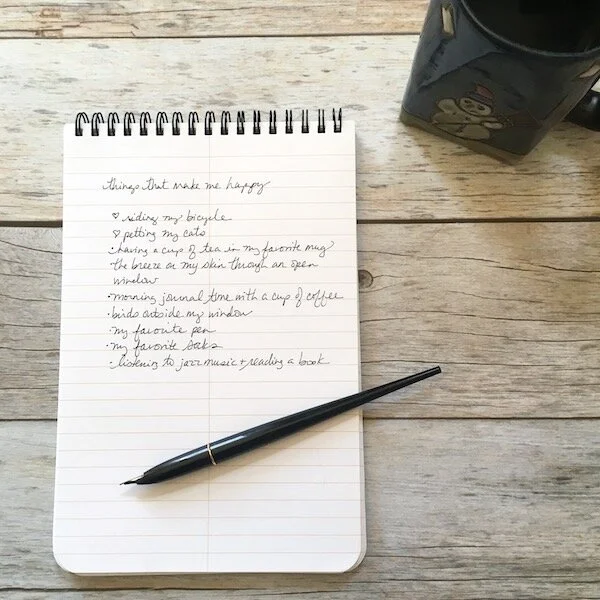 things that make me happy
♡ riding my bicycle
♡ petting my cats
· having a cup of tea in my favorite mug
the breeze on my skin through an open
window
· morning journal time with a cup of coffee
· birds outside my window
· my favorite pen
· my favorite socks
· listening to jazz music + reading a book